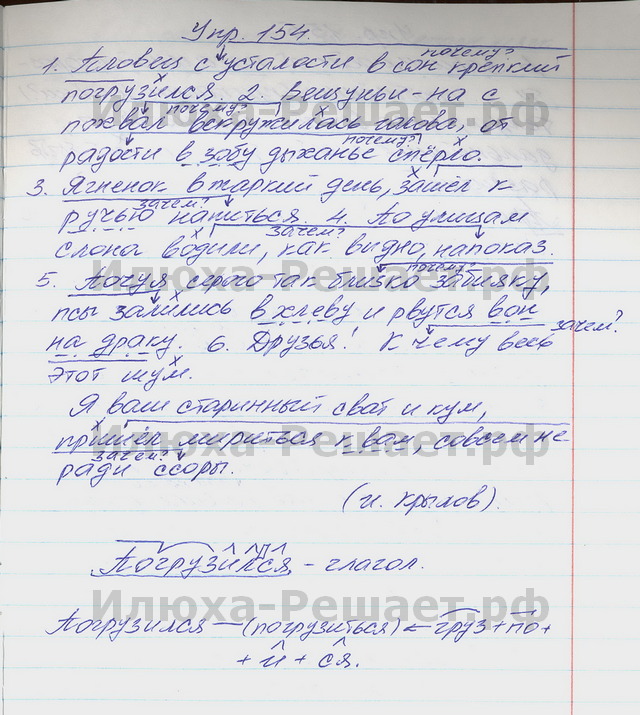 Упр. 154.
почему?
1. Пловец с усталости в сон крепкий
погрузился. 2. Вещуньи-на с
почему?
похвал вскружилась голова, от
почему?
радости в зобу дыханье спёрло.
3. Ягненок в жаркий день, зашёл к
зачем?
ручью напиться. 4. По улицам
зачем?
слона водили, как видно, напоказ.
почему?
5. Почуя серого так близко забияку,
псы залились в хлеву и рвутся вон
зачем?
на драку. 6. Друзья! К чему весь
этот шум.
Я ваш старинный сват и кум,
пришёл мириться к вам, совсем не
зачем?
ради ссоры.
(И. Крылов).
Погрузился - глагол.
Погрузился — (погрузиться) ← груз + по +
+ и + ся.
Илюха-Решает.рф
Илюха-Решает.рф
Илюха-Решает.рф
Илюха-Решает.рф
Илюха-Решает.рф